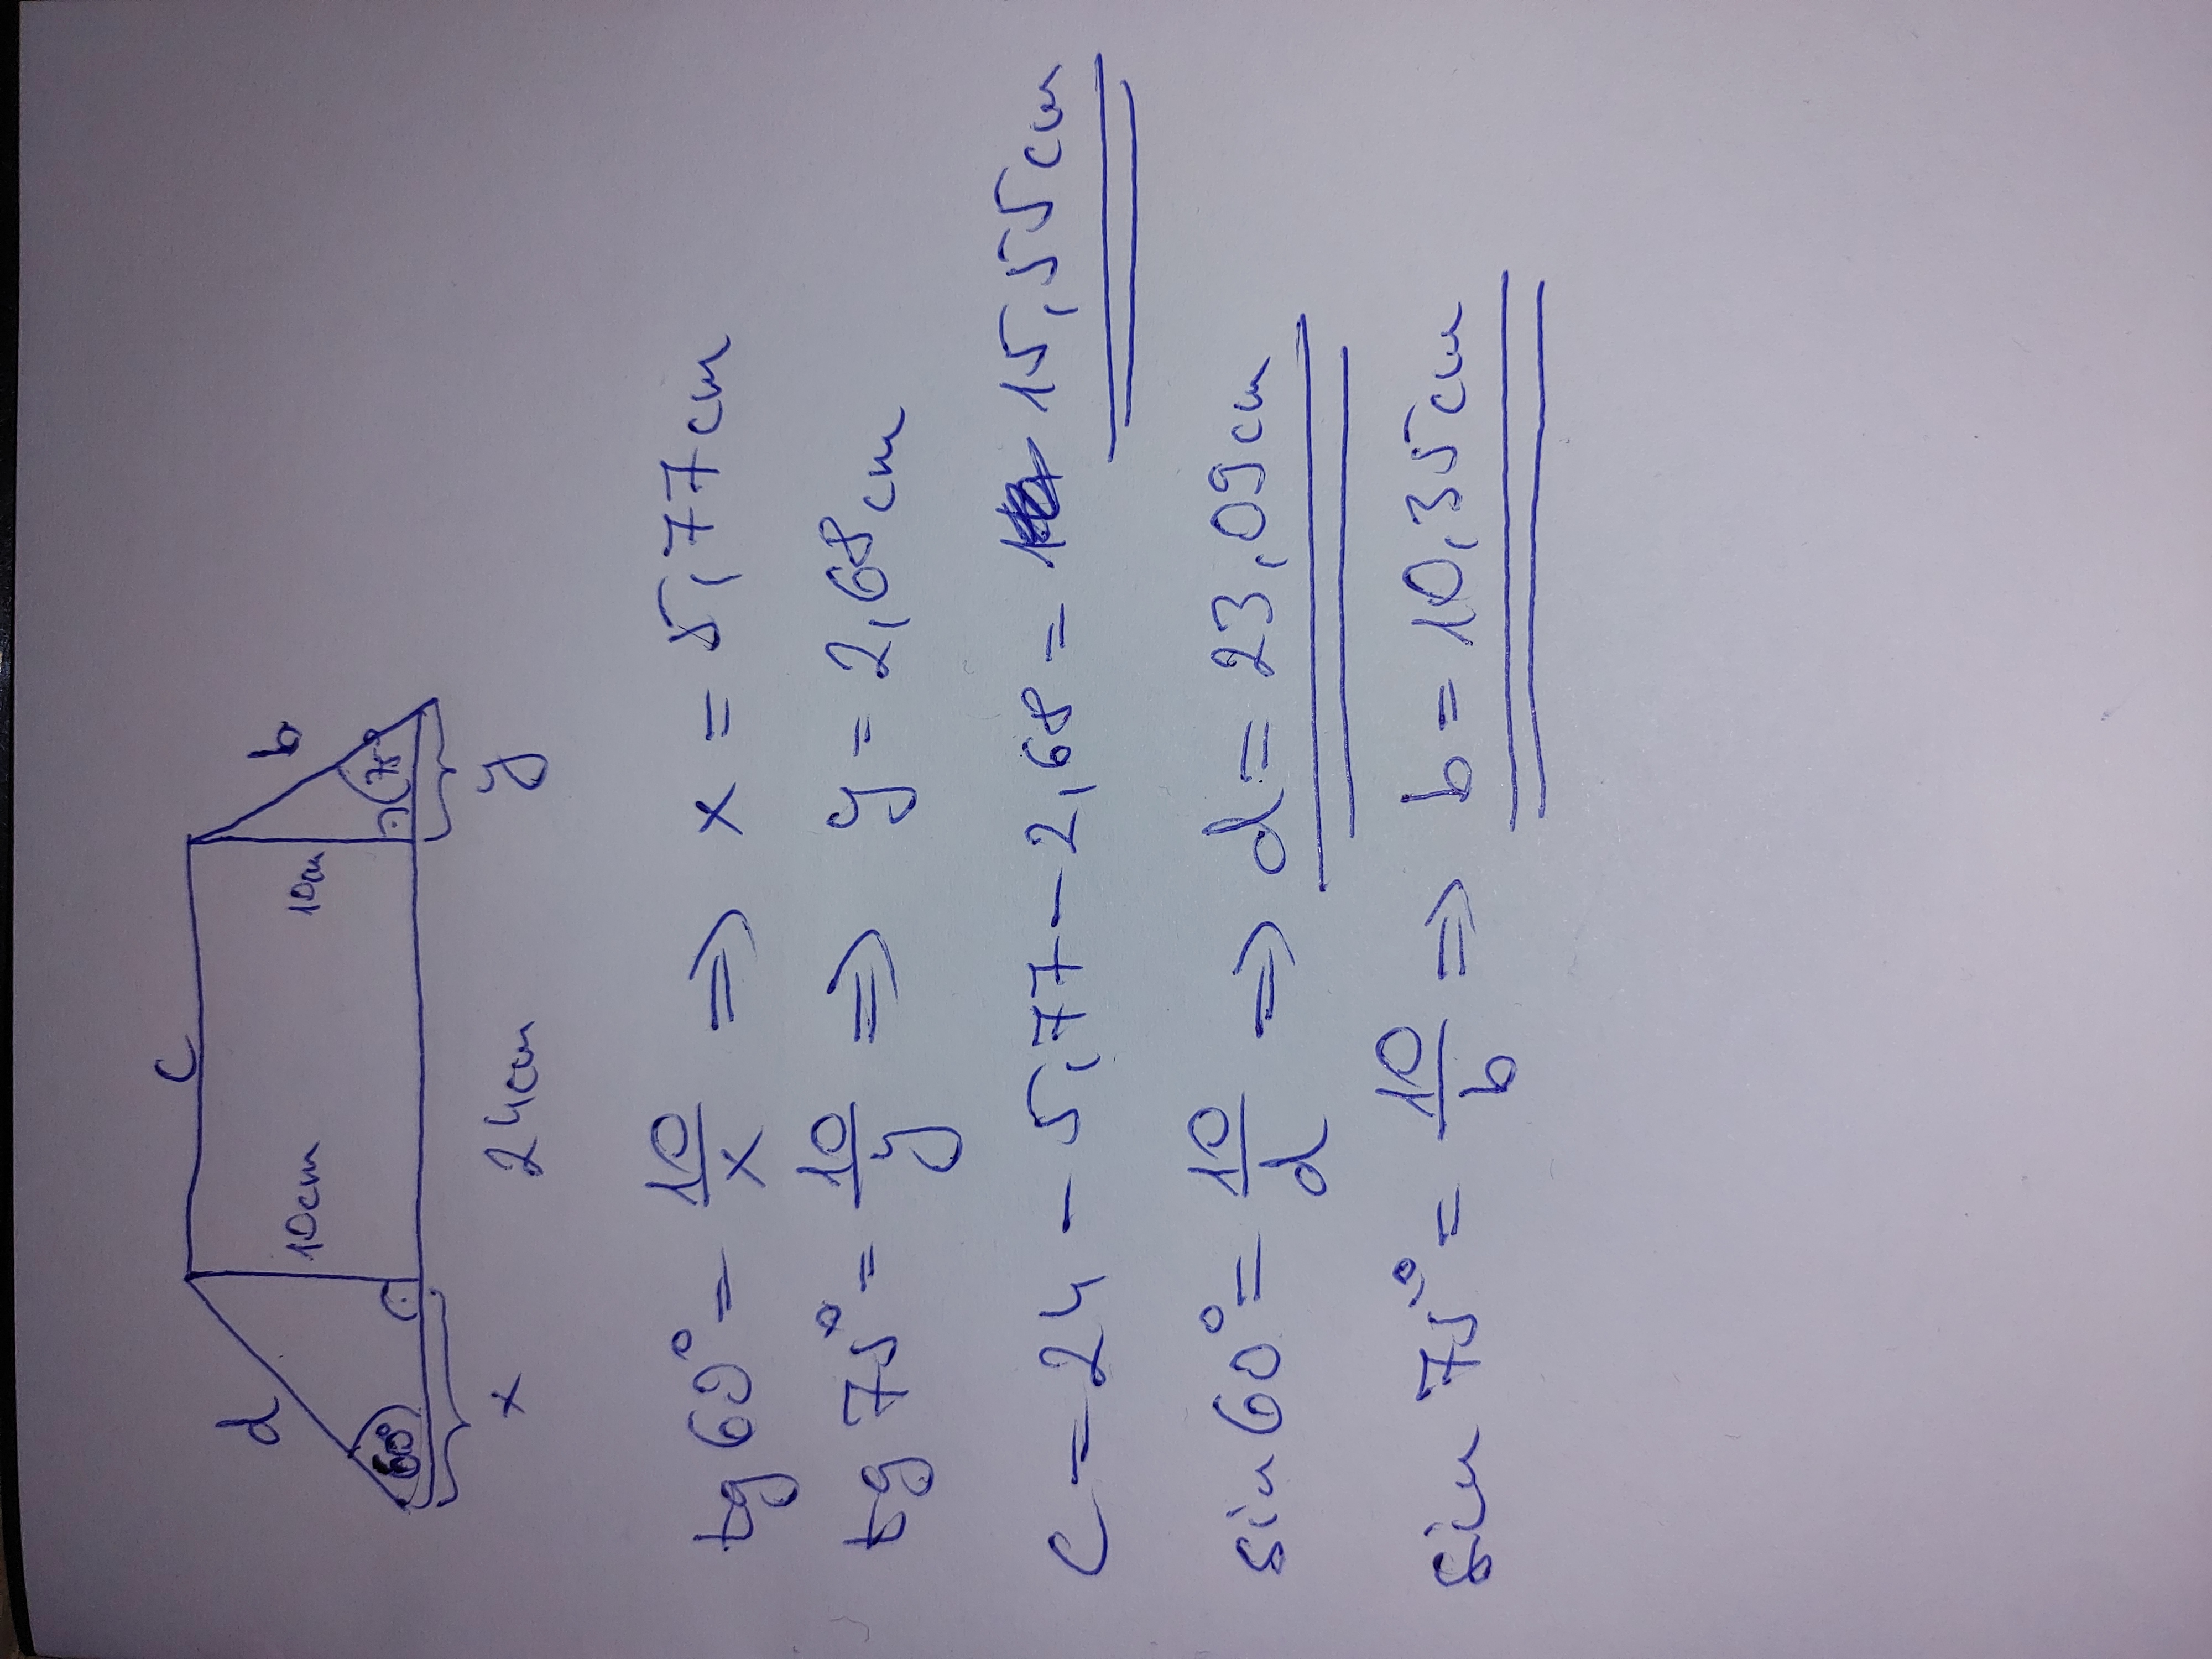 c
d
b
10cm
10cm
60°
75°
x
24cm
y
tg 60° = 10/x ⇒ x = 5,77cm
tg 75° = 10/y ⇒ y = 2,68cm
c = 24 - 5,77 - 2,68 = 15,55cm
sin 60° = 10/d ⇒ d = 23,09cm
sin 75° = 10/b ⇒ b = 10,35cm